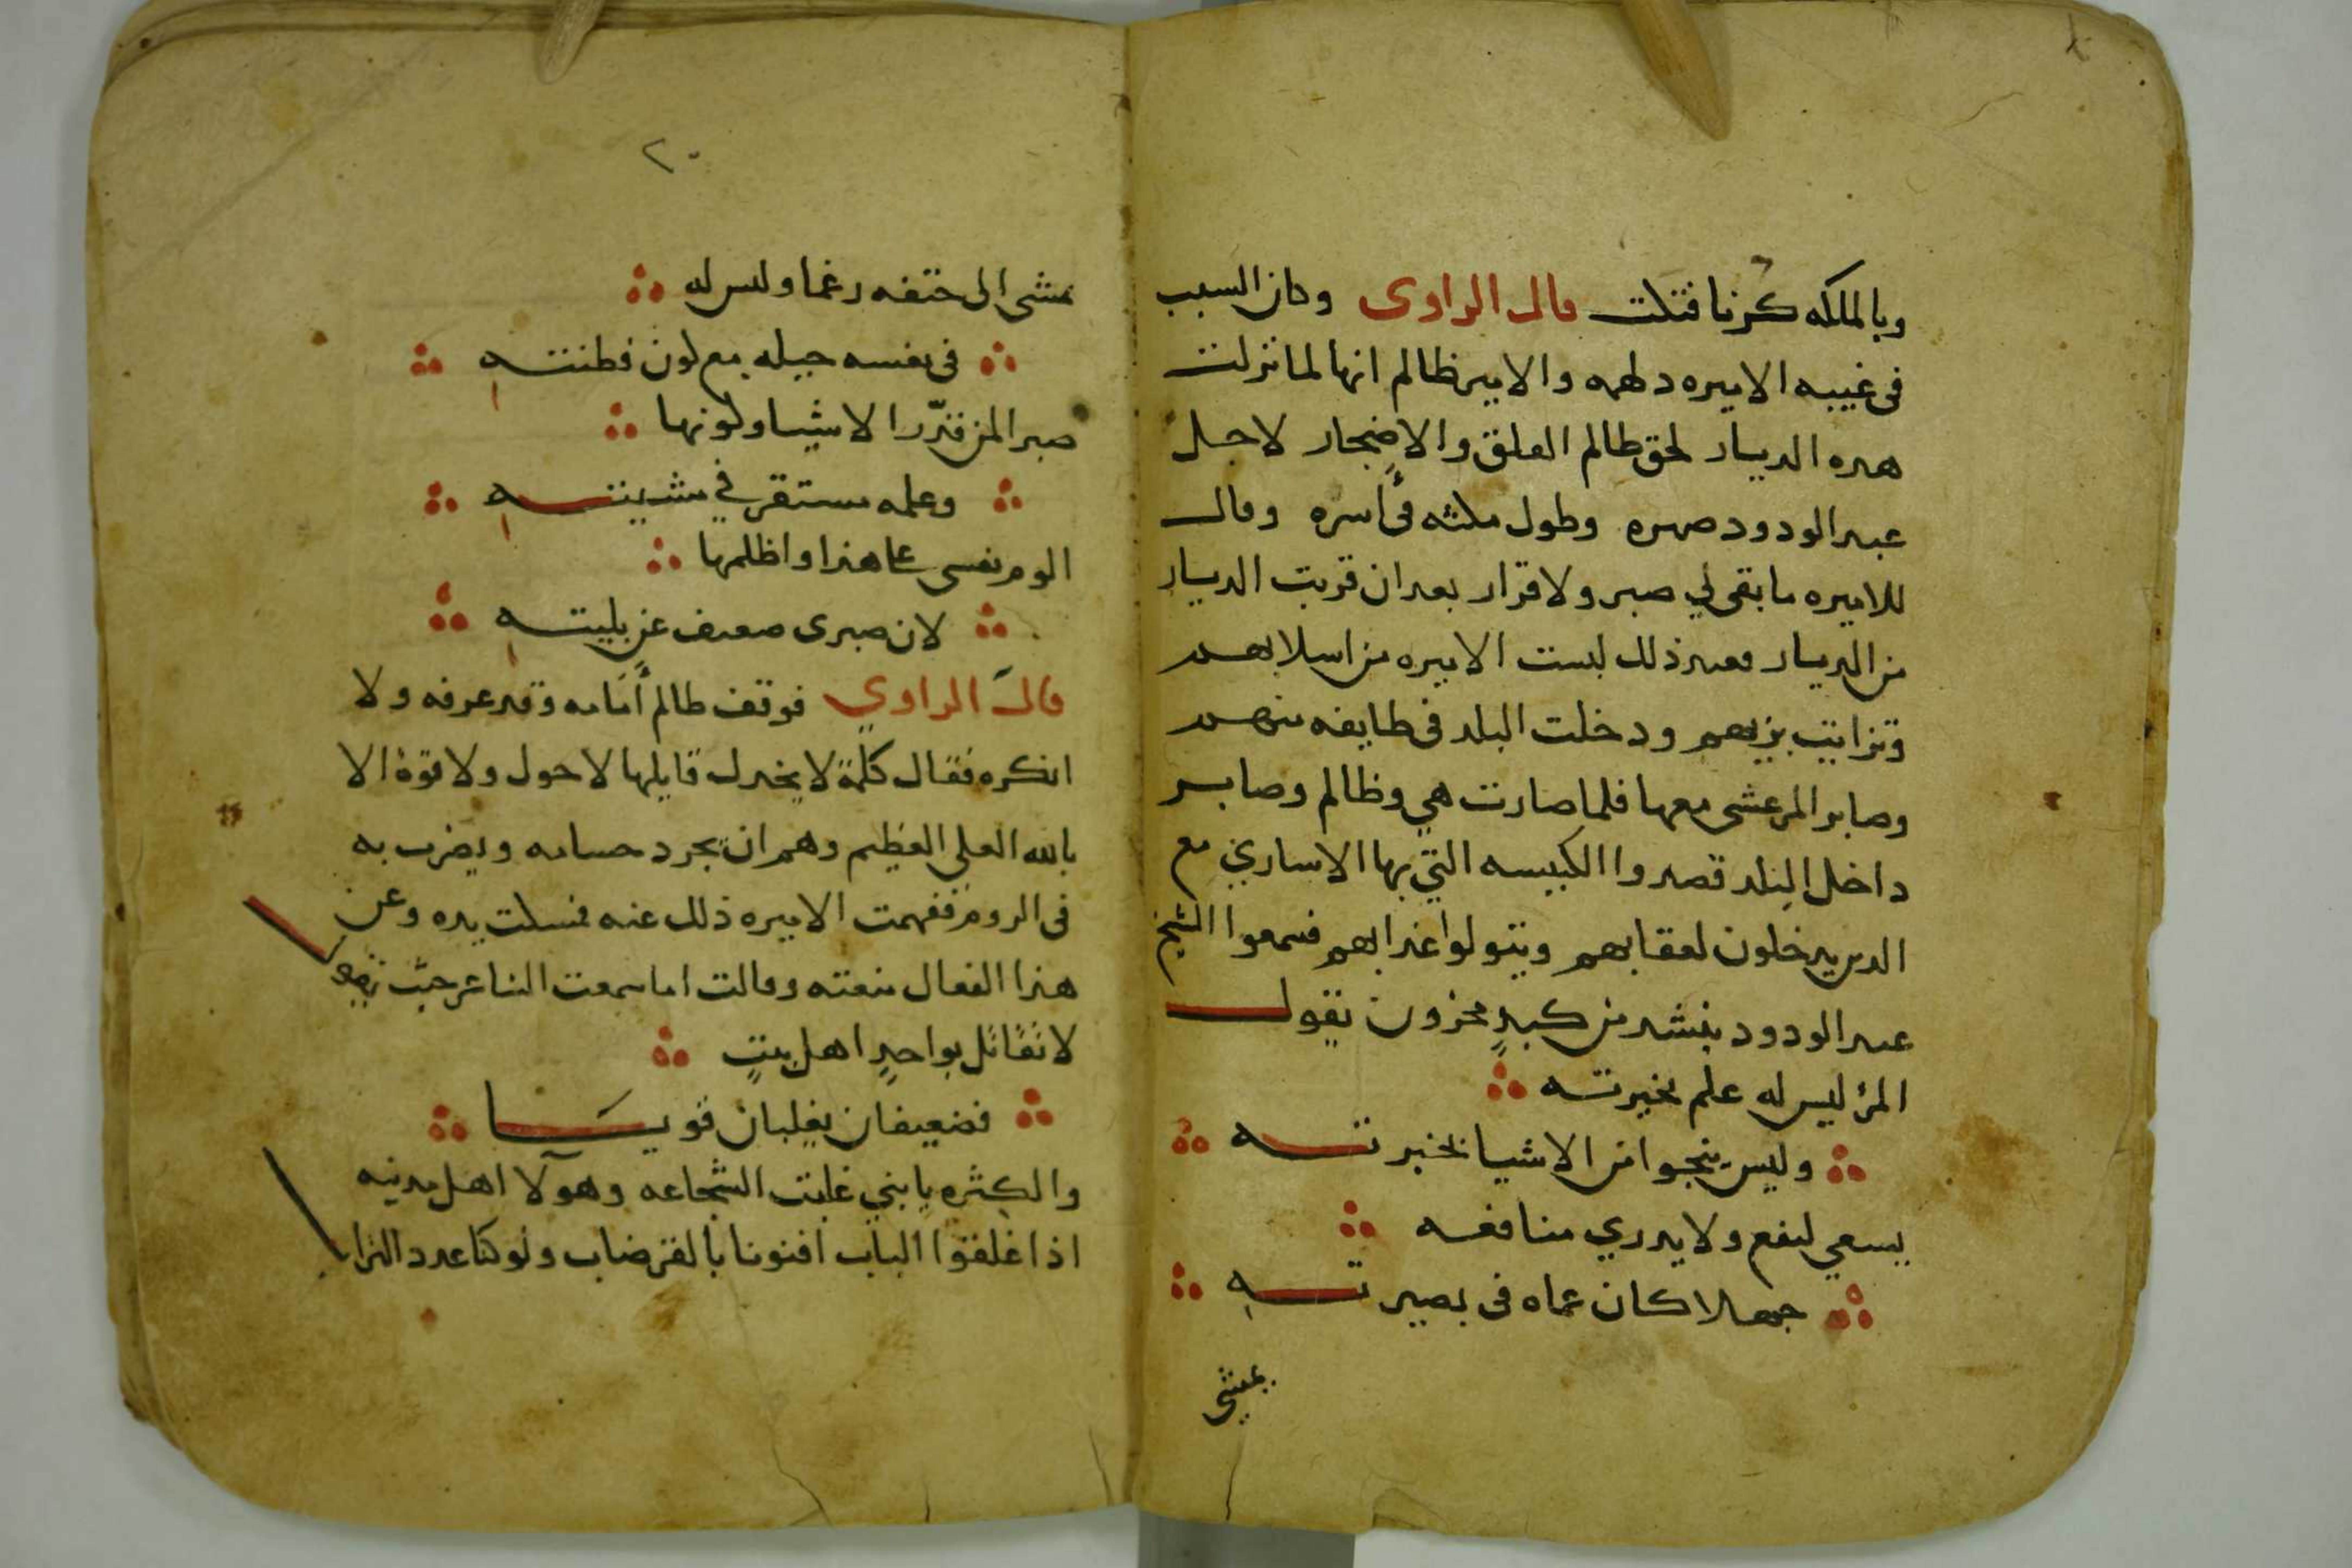 وبالملكه كرنا فتكت قال الراوى وكان السبب
فى غيبه الاميره دلهمه والامير ظالم انها لما نزلت
هده الديار لحق ظالم القلق والاضجار لاجل
عبد الودود صهره وطول مكثه فى أسره وقال
للاميره ما بقى لي صبر ولا قرار بعد ان قربت الديار
من الديار فعند ذلك لبست الاميره من اسلابهم
وتزايت بزيهم ودخلت البلد فى طايفه منهم
وصابر المرعشى معها فلما صارت هي وظالم وصابر
داخل البلد قصدوا الكنيسه التي بها الاساري مع
الدين يدخلون لعقابهم ويتولوا عذابهم فسمعوا الشيخ
عبد الودود ينشد من كبدٍ محزون يقول
المرء ليس له علم بخيرته
وليس ينجوا من الاشيا بخبرته
يسعي لنفع ولا يدري منافعه
جهلا كان عماه فى بصيرته
يمشى
٢٠
يمشى الى حتفه رغما وليس له
فى نفسه حيله مع لون فطنته
صبرا لمن قدّر الاشيا ولونها
وعلمه مستقر في مشيته
الوم نفسى على هذا واظلمها
لان صبرى ضعيف عن بليته
قال الراوي فوقف ظالم أمامه وقد عرفه ولا
انكره فقال كلمة لا يخدل قايلها لا حول ولا قوة الا
بالله العلى العظيم وهم ان يجرد حسامه ويضرب به
فى الروم ففهمت الاميره ذلك عنه فمسكت يده وعن
هذا الفعال منعته وقالت اما سمعت الشاعر حيث يقول
لا تقاتل بواحدٍ اهل بيتٍ
فضعيفان يغلبان قويا
والكثره يا بني غلبت الشجاعه وهولآ اهل مدينه
اذا غلقوا الباب افنونا بالقرضاب ولو كنا عدد التراب